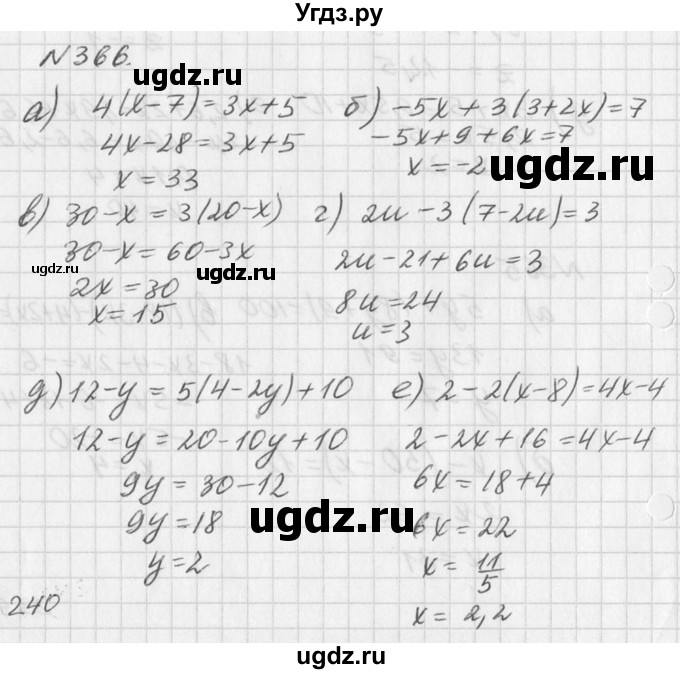 Угдз.ру
N366.
а) 4(x-7)=3x+5
4x-28=3x+5
x=33
б) -5x+3(3+2x)=7
-5x+9+6x=7
x=-2
в) 30-x=3(20-x)
30-x=60-3x
2x=30
x=15
г) 2u-3(7-2u)=3
2u-21+6u=3
8u=24
u=3
д) 12-y=5(4-2y)+10
12-y=20-10y+10
9y=30-12
9y=18
y=2
е) 2-2(x-8)=4x-4
2-2x+16=4x-4
6x=18+4
6x=22
x=11/5
x=2,2
240
ugdz.ru
ugdz.ru
ugdz.ru
ugdz.ru
ugdz.ru
ugdz.ru
ugdz.ru
ugdz.ru